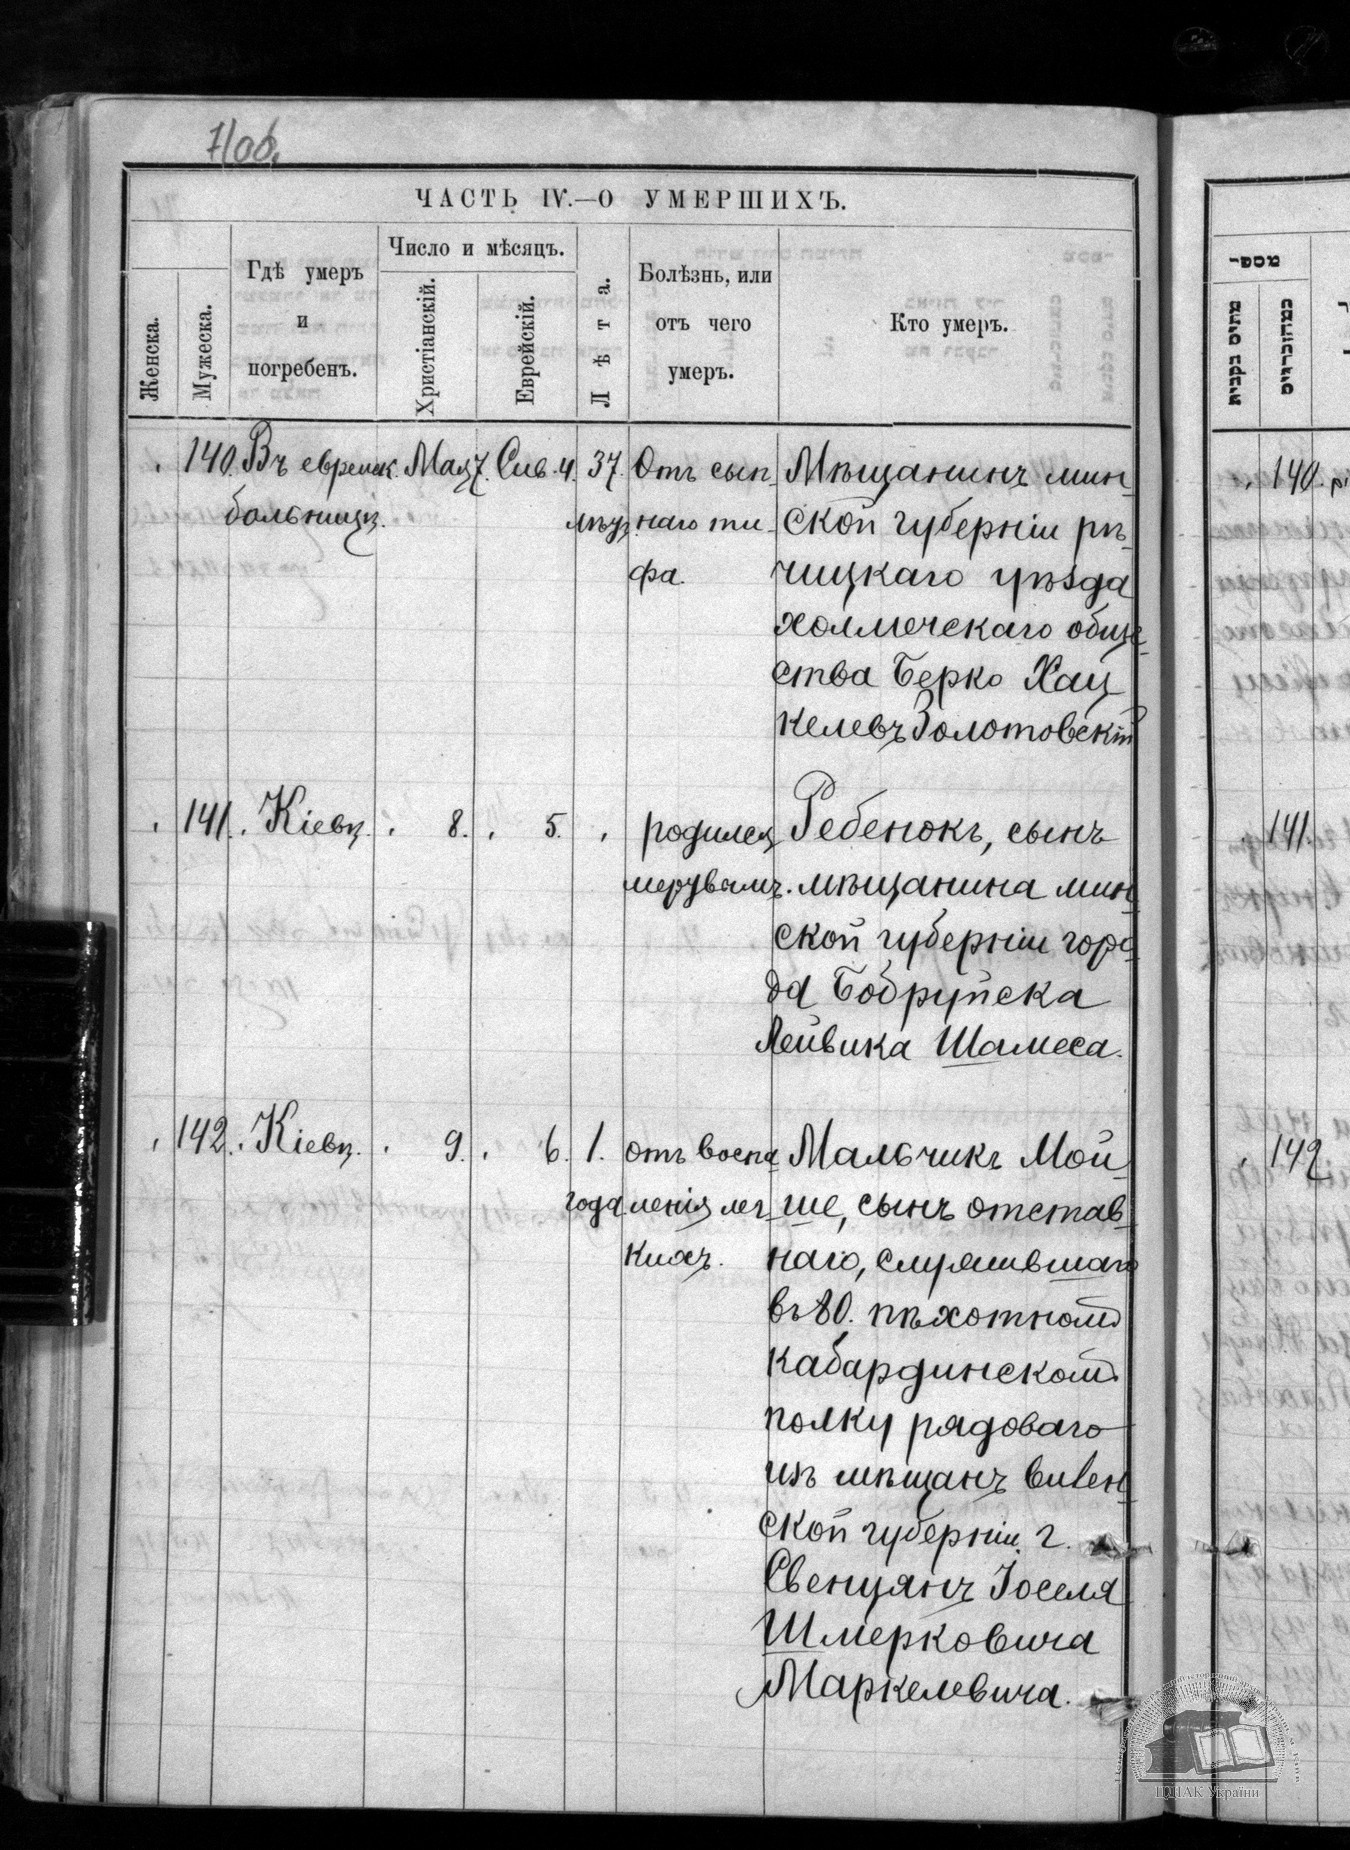 7/об.
ЧАСТЬ IV.—О УМЕРШИХЪ.
Женска.
Мужеска.
Гдѣ умеръ
и
погребенъ.
Число и мѣсяцъ.
Христіанскій.
Еврейскій.
Лѣта.
Болѣзнь, или
отъ чего
умеръ.
Кто умеръ.
140. Въ еврейск. Мая 7. Сив. 4. 37. Отъ сып- Мѣщанинъ мин-
больницѣ. лѣтъ наго ти- ской губерніи рѣ-
фа. чицкаго уѣзда
холмечскаго обще-
ства Берко Хац
келевъ Золотовскій
141. Кіевѣ. 8. 5. родился Ребенокъ, сынъ
мертвымъ. мѣщанина мин-
ской губерніи горо-
да Бобруйска
Лейвика Шамеса.
142. Кіевѣ. 9. 6. 1. отъ воспа Мальчикъ Мой-
года ленія лег- ше, сынъ отстав-
кихъ. наго, служившаго
въ 80. пѣхотномъ
Кабардинскомъ
полку рядоваго
изъ мѣщанъ вилен-
ской губерніи г.
Свенцянъ Іоселя
Шмерковича
Маркелевича.
מספר
מתים נקבות
140.
141.
142
ЦДІАК України